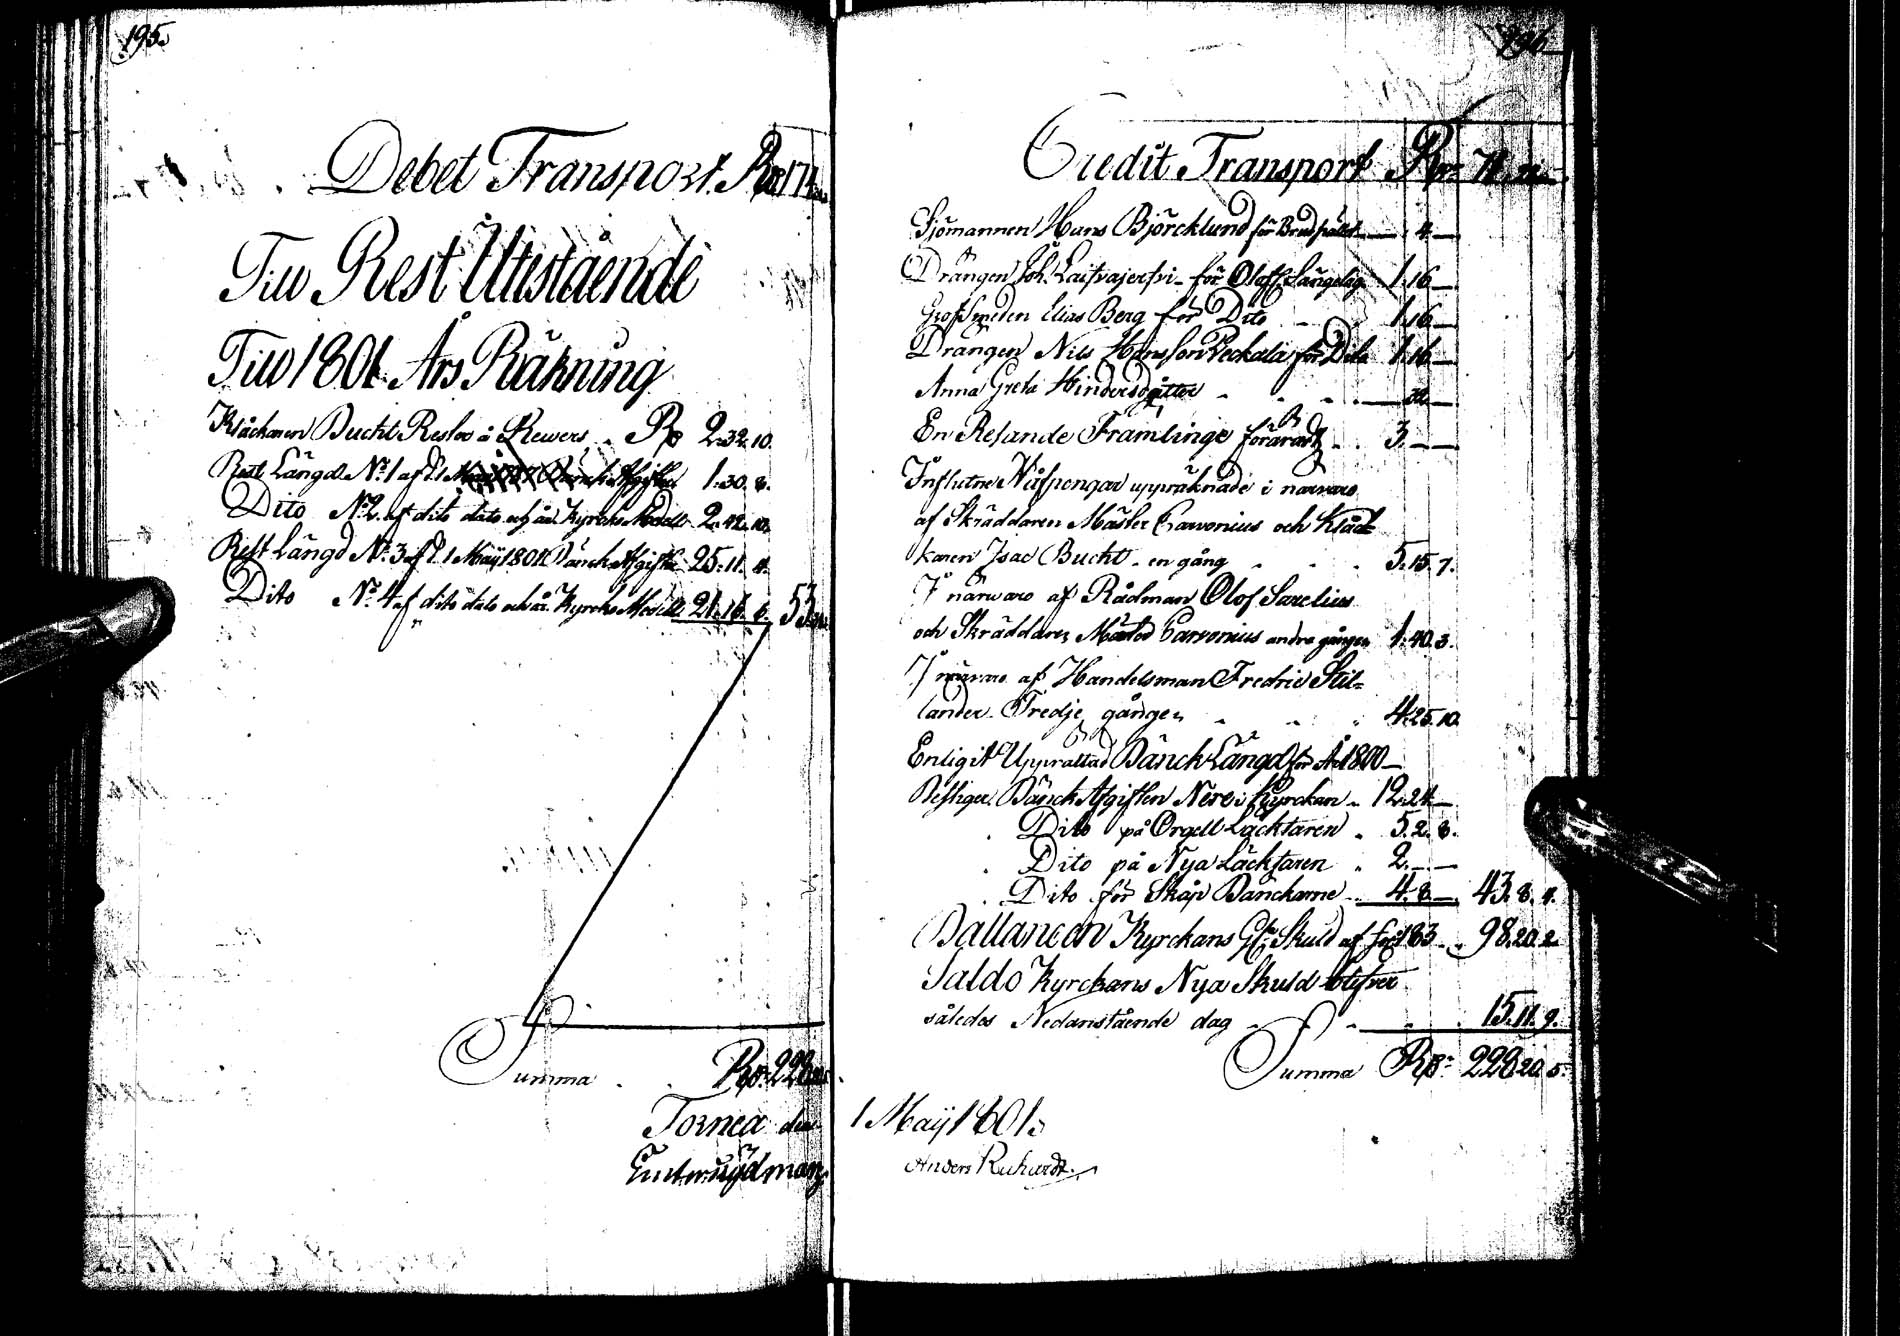 195.
Debet Transport Rdr 174
Till Rest Utestående
Till 1801 Års Räkning
Klåckaren Bucht Resterar å Rewers Rd 2.32.10.
Rest Längd No. 1 af d. 1 Bänck Afgifter 1.30.8.
Dito No. 2. af dito dato och år Kyrcko Medell 2.42.10.
Rest Längd No. 3 af d. 1 Maÿ 1801 Bänck Afgifter 25.11.4.
Dito No. 4 af dito dato och år Kyrcko Medell 21.16.6. 53.
Summa Rdr 228
Torneå den
196
Credit Transport Rdr 71.
Sjömannen Hans Björcklund för 4.—
Drängen Joh. för Oloff 1.16—
Grofsmeden Elias Berg för Dito 1.16—
Drängen Nils Hansson för Dito 1.16—
Anna Greta Hindersdotter
En Resande Främlinge förärat 3.—
Influtne Håfpengar uppräknade i närwaro
af Skräddaren Mäster Carvonius och Klåc=
karen Isac Bucht en gång 5.15.7.
I närwaro af Rådman Olof Sarelius
och Skräddaren Mäster Carvonius andra gången 1.40.3.
I närwaro af Handelsman Fredric Stil=
lander Tredje gången 4.25.10.
Enligit Upprättad Bänck Längd för År 1800—
Bänck Afgiften Nere i Kyrckan 12.24—
Dito på Orgell Läcktaren 5.2.8.
Dito på Nya Läcktaren 2.—
Dito för Skåp Bänckarne 4.8— 43.8.4.
Ballancen Kyrckans Skuld af 183 98.20.2
Saldo Kyrckans Nya Skuld blifver
således Nedanstående dag 15.11.9.
Summa Rdr 228.20.5.
1 Maÿ 1801.
Anders